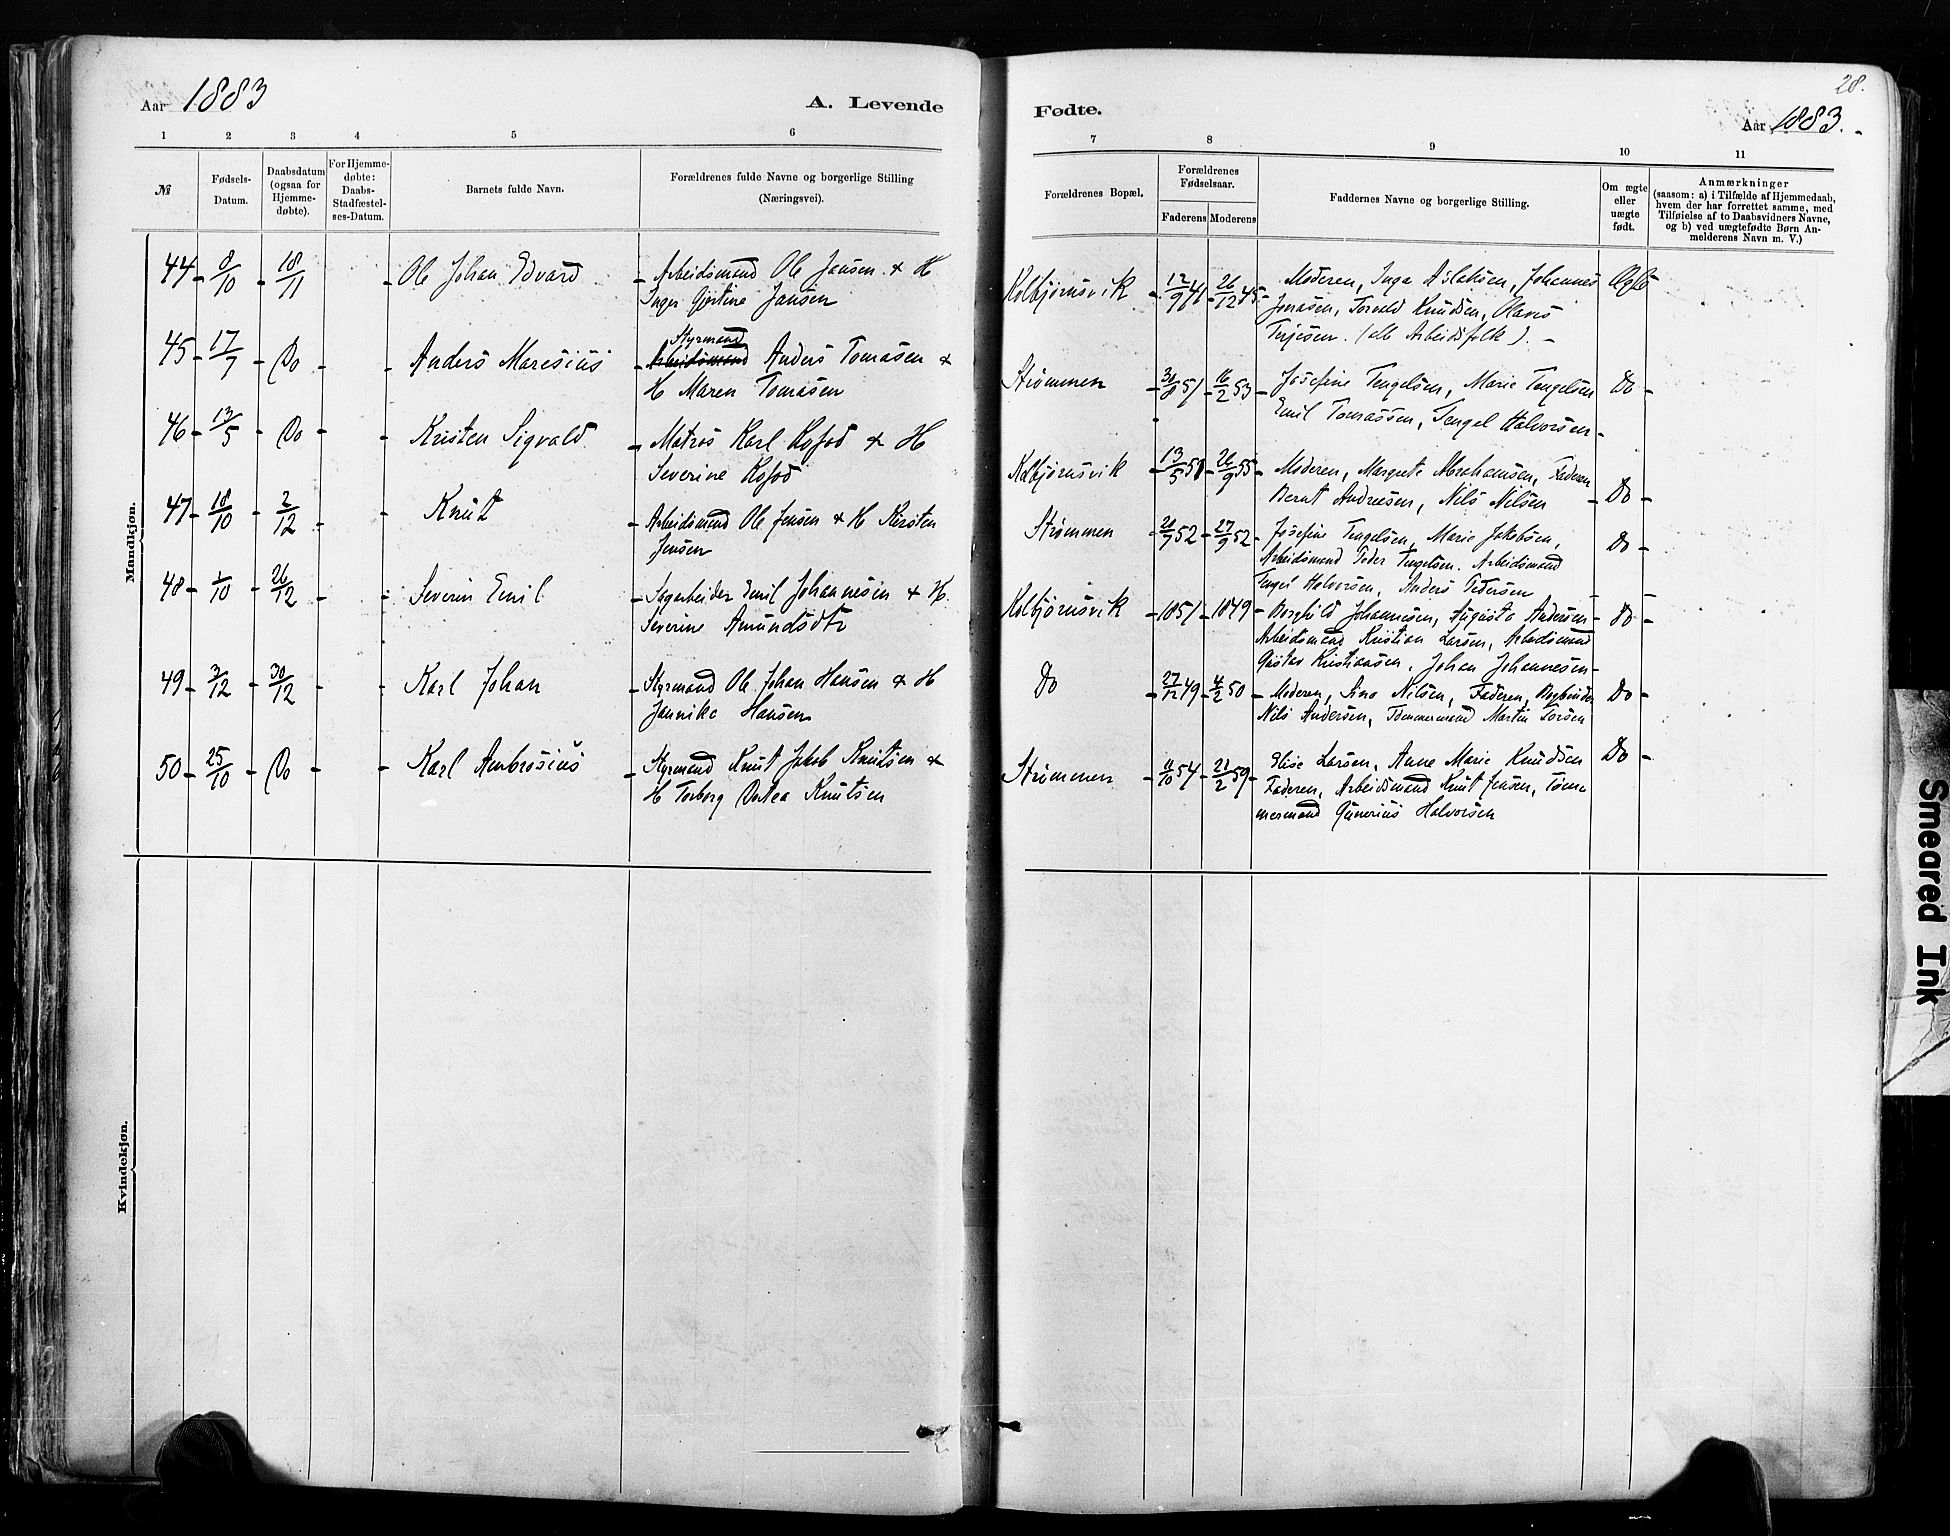 Aar 1883
A. Levende
1 2 3 4 5 6
№
Fødsels-
Datum.
Daabsdatum
(ogsaa for
Hjemme-
døbte).
For Hjemme-
døbte:
Daabs-
Stadfæstel-
ses-Datum.
Barnets fulde Navn.
Forældrenes fulde Navne og borgerlige Stilling
(Næringsvei).
Mandkjøn.
44 8/10 18/11 Ole Johan Edvard Arbeidsmand Ole Jansen & H
Inger Gjørtine Jansen
45 17/7 Do Anders Maresius Styrmand
Arbeidsmand Anders Tomasen &
H Maren Tomasen
46 13/5 Do Kristen Sigvald Matros Karl Kofod & H
Severine Kofod
47 18/10 2/12 Knut Arbeidsmand Ole Jensen & H Kirsten
Jensen
48 1/10 26/12 Severin Emil Sagarbeider Emil Johannesen & H.
Severine Amundsdtr
49 3/12 30/12 Karl Johan Styrmand Ole Johan Hansen & H
Jannike Hansen
50 25/10 Do Karl Ambrosius Styrmand Knut Jakob Knutsen &
H Torborg Dortea Knutsen
Kvindekjøn.
28.
Fødte.
Aar 1883.
7 8 9 10 11
Forældrenes Bopæl.
Forældrenes
Fødselsaar.
Faderens Moderens
Faddernes Navne og borgerlige Stilling.
Om ægte
eller
uægte
født.
Anmærkninger
(saasom: a) i Tilfælde af Hjemmedaab,
hvem der har forrettet samme, med
Tilføielse af to Daabsvidners Navne,
og b) ved uægtefødte Børn An-
melderens Navn m. V.)
Kolbjørnsvik 12/9 41 26/12 45 Moderen, Inga Aslaksen, Johannes Ægte
Jonasen, Torvald Knudsen, Olaves
Terjesen. (alle Arbeidsfolk). -
Strømmen 51 16/2 53 Josefine Tengelsen, Marie Tengelsen Do
Emil Tomassen, Tengel Halvorsen
Kolbjørnsvik 13/5 51 26/9 55 Moderen, Margrete Abrahamsen, Faderen
Bernt Andresen, Nils Nilsen Do
Strømmen 52 27/9 52 Josefine Tengelsen, Marie Jakobsen, Do
Arbeidsmand Peder Tengelsen. Arbeidsmand
Tengel Halvorsen, Anders Pedersen
Kolbjørnsvik 1851 1849 Borghild Johannesen, Augusta Andersen Do
Arbeidsmand Kristian Larsen, Arbeidsmand
Gustav Kristiansen, Johan Johannesen
Do 27/12 49 4/2 50 Moderen, Sina Nilsen, Faderen, Bogbinder Do
Nils Andersen, Tømmermand Martin Torsen
Strømmen 11/10 54 21/2 59 Elise Larsen, Anne Marie Knudsen Do
Faderen, Arbeidsmand Knut Jensen, Tøm-
mermand Gunerius Halvorsen
Smeared Ink